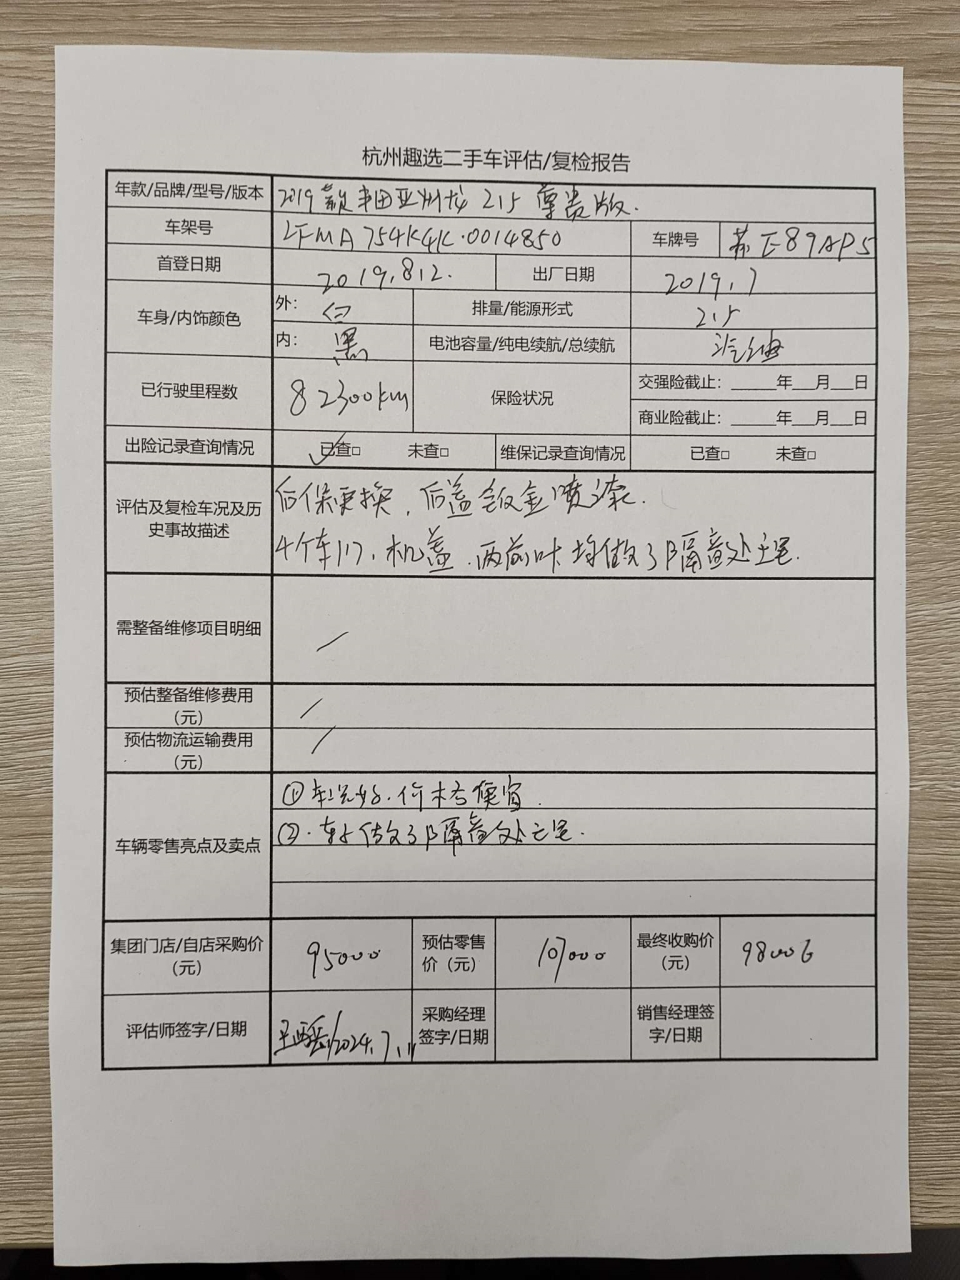 杭州趣选二手车评估/复检报告
年款/品牌/型号/版本 2019款丰田亚洲龙 2.5 尊贵版.
车架号 LFMA754K4K0014850 车牌号 苏E89AP5
首登日期 2019.8.2. 出厂日期 2019.7
车身/内饰颜色 外: 白 排量/能源形式 2.5
内: 黑 电池容量/纯电续航/总续航 汽油
已行驶里程数 82300km 保险状况 交强险截止: ______年___月___日
商业险截止: ______年___月___日
出险记录查询情况 已查□ 未查□ 维保记录查询情况 已查□ 未查□
评估及复检车况及历史事故描述 后保更换, 后盖钣金喷漆.
4个车门, 机盖, 两前叶均做了隔音处理.
需整备维修项目明细 /
预估整备维修费用(元) /
预估物流运输费用(元) /
车辆零售亮点及卖点 ① 车况好, 价格便宜.
②. 车子做了隔音处理.
集团门店/自店采购价(元) 95000 预估零售价(元) 107000 最终收购价(元) 98000
评估师签字/日期 2024.7.11 采购经理签字/日期 销售经理签字/日期